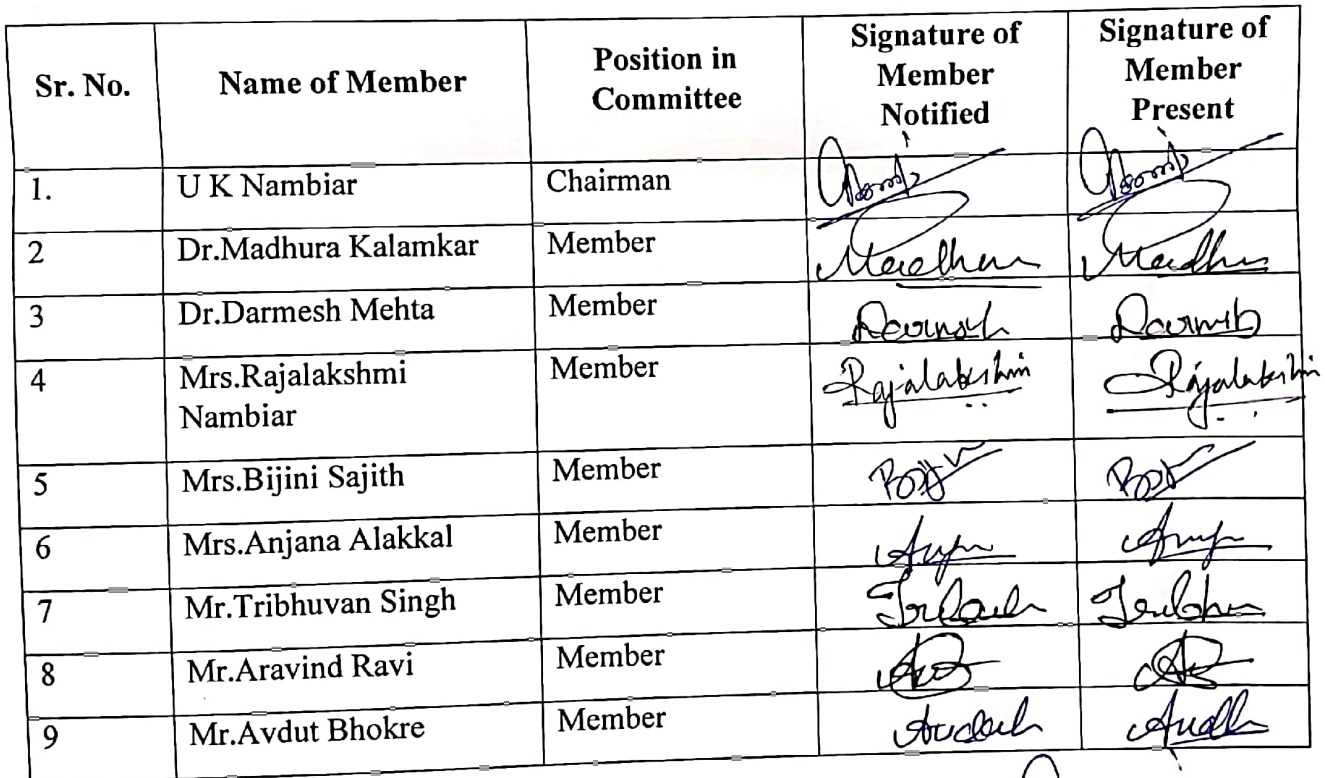 Sr. No. Name of Member Position in Committee Signature of Member Notified Signature of Member Present
1. U K Nambiar Chairman
2 Dr.Madhura Kalamkar Member
3 Dr.Darmesh Mehta Member
4 Mrs.Rajalakshmi Nambiar Member Rajalakshmi Rajalakshmi
5 Mrs.Bijini Sajith Member
6 Mrs.Anjana Alakkal Member
7 Mr.Tribhuvan Singh Member
8 Mr.Aravind Ravi Member
9 Mr.Avdut Bhokre Member